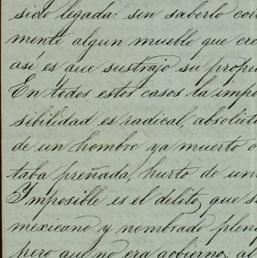 sido legada: sin saberlo com
mente algun mueble que cre
así es que sustrajo su propie
En todos estos casos la impo
sibilidad es radical, absoluta
de un hombre ya muerto o
taba preñada, hurto de un
Imposible es el delito, que s
mexicano y nombrado pleni
pero que no era gobierno; al